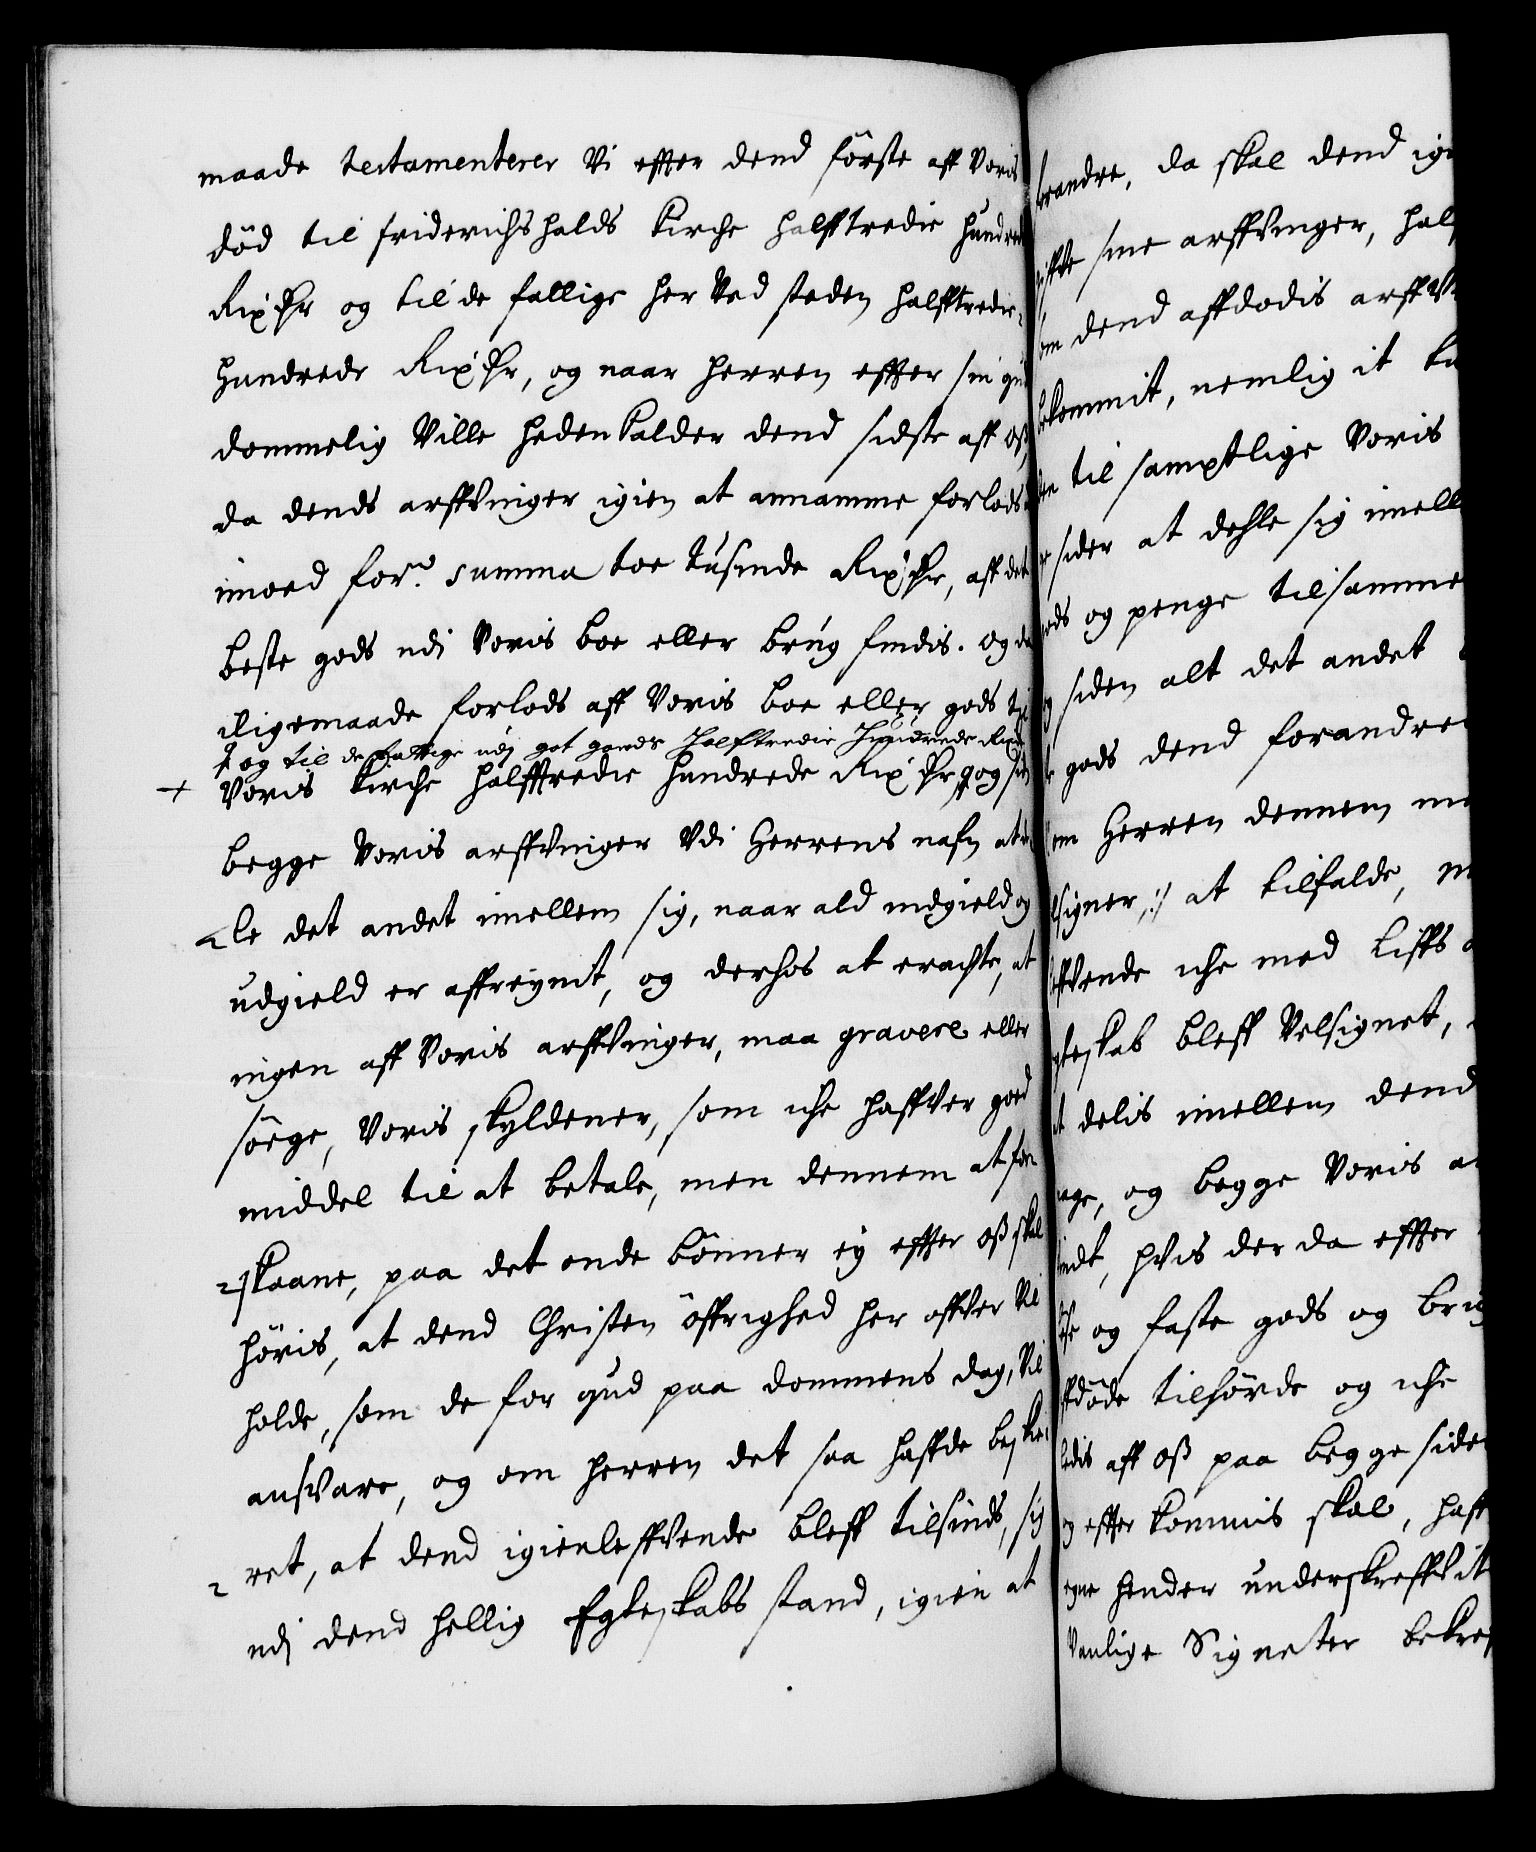 maade testamenterer Vi effter dend förste aff Voris
död til friderichshalds Kirche halfftredie hundred
Rixdr og til de fattige her Ved steden halfftredie-
hundrede Rixdr, og naar Herren effter sin gud
dommelig Ville hedenkalder dend sidste aff oß,
da dends arffvinger igien at annamme forlods
imod forne summa toe tusinde Rixdr, aff det
beste gods udj Voris boe eller brug findis. og da
iligemaade forlods aff Voris boe eller gods til
† og til de fattige udj got gands halftredie hundrede Rixdr
+ Voris Kirche halfftredie hundrede Rixdr, og siden
begge Voris arffvinger Udi Herrens nafn at
le det andet imellem sig, naar ald indgield og
udgield er affregnit, og derhos at erachte, at
ingen aff Voris arffvinger, maa gravere eller
söege, Voris skyldener, som iche haffver goed
middel til at betale, men dennem at for
skaane, paa det onde bönner ey effter oß skal
höris, at dend Christen öffrighed her offver Vil
holde, som de for gud paa dommens dag, Vil
ansvare, og om Herren det saa haffde beskie-
ret, at dend igienleffvende bleff tilsinds, sig
udj dend hellig Egteskabs stand, igien at
brandre, da skal dend igi
sine arffvinger, hal
om dend affdödis arffv
bekommit, nemlig it
til samptlige Voris
sider at dehle sig imell
gods og penge tilsamme
og siden alt det andet
gods dend forandre
Herren dennem
signer :/ at tilfalde,
ffvende iche med Liffs
teskab bleff Velsignet,
delis imellem dend
age, og begge Voris
indt, hvis der da effter
og faste gods og bru
ffdöde tilhörde og iche
aff oß paa begge side
og effter kommis skal, haff
egne hender underskreffvit
Vanlige Signeter bekref